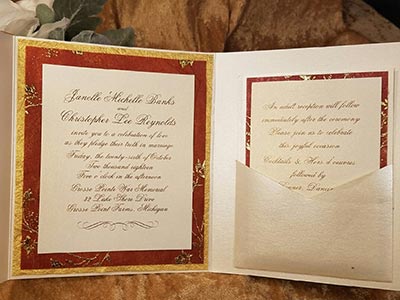 Janelle Michelle Banks
and
Christopher Lee Reynolds
invite you to a celebration of love
as they pledge their troth in marriage
Friday, the twenty-sixth of October
Two thousand eighteen
Five o'clock in the afternoon
Grosse Pointe War Memorial
32 Lake Shore Drive
Grosse Point Farms, Michigan
An adult reception will follow
immediately after the ceremony
Please join us to celebrate
this joyful occasion
Cocktails & Hors d'oeuvres
followed by
Dinner, Dancing